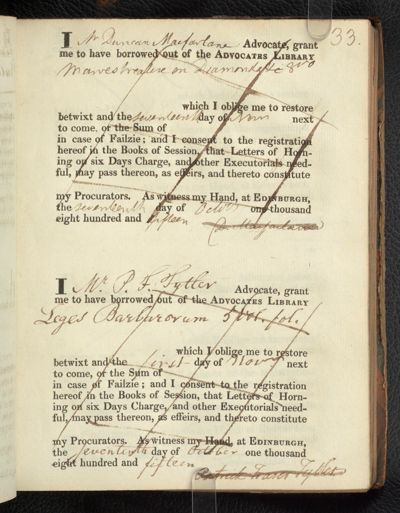 33.
I Mr Duncan Macfarlane Advocate, grant
me to have borrowed out of the ADVOCATES LIBRARY
Mawes treatise on Diamonds &c 8vo
which I oblige me to restore
betwixt and the seventeenth day of next
to come, or the Sum of
in case of Failzie; and I consent to the registration
hereof in the Books of Session, that Letters of Horn-
ing on six Days Charge, and other Executorials need-
ful, may pass thereon, as effeirs, and thereto constitute
my Procurators. As witness my Hand, at EDINBURGH,
the seventeenth day of Octobr one thousand
eight hundred and fifteen
D. Macfarlane
I Mr. P. F. Tytler Advocate, grant
me to have borrowed out of the ADVOCATES LIBRARY
Leges Barbarorum 5 Vol. fol.
which I oblige me to restore
betwixt and the first day of Novr next
to come, or the Sum of
in case of Failzie; and I consent to the registration
hereof in the Books of Session, that Letters of Horn-
ing on six Days Charge, and other Executorials need-
ful, may pass thereon, as effeirs, and thereto constitute
my Procurators. As witness my Hand, at EDINBURGH,
the seventeenth day of October one thousand
eight hundred and fifteen
Patrick Fraser Tytler